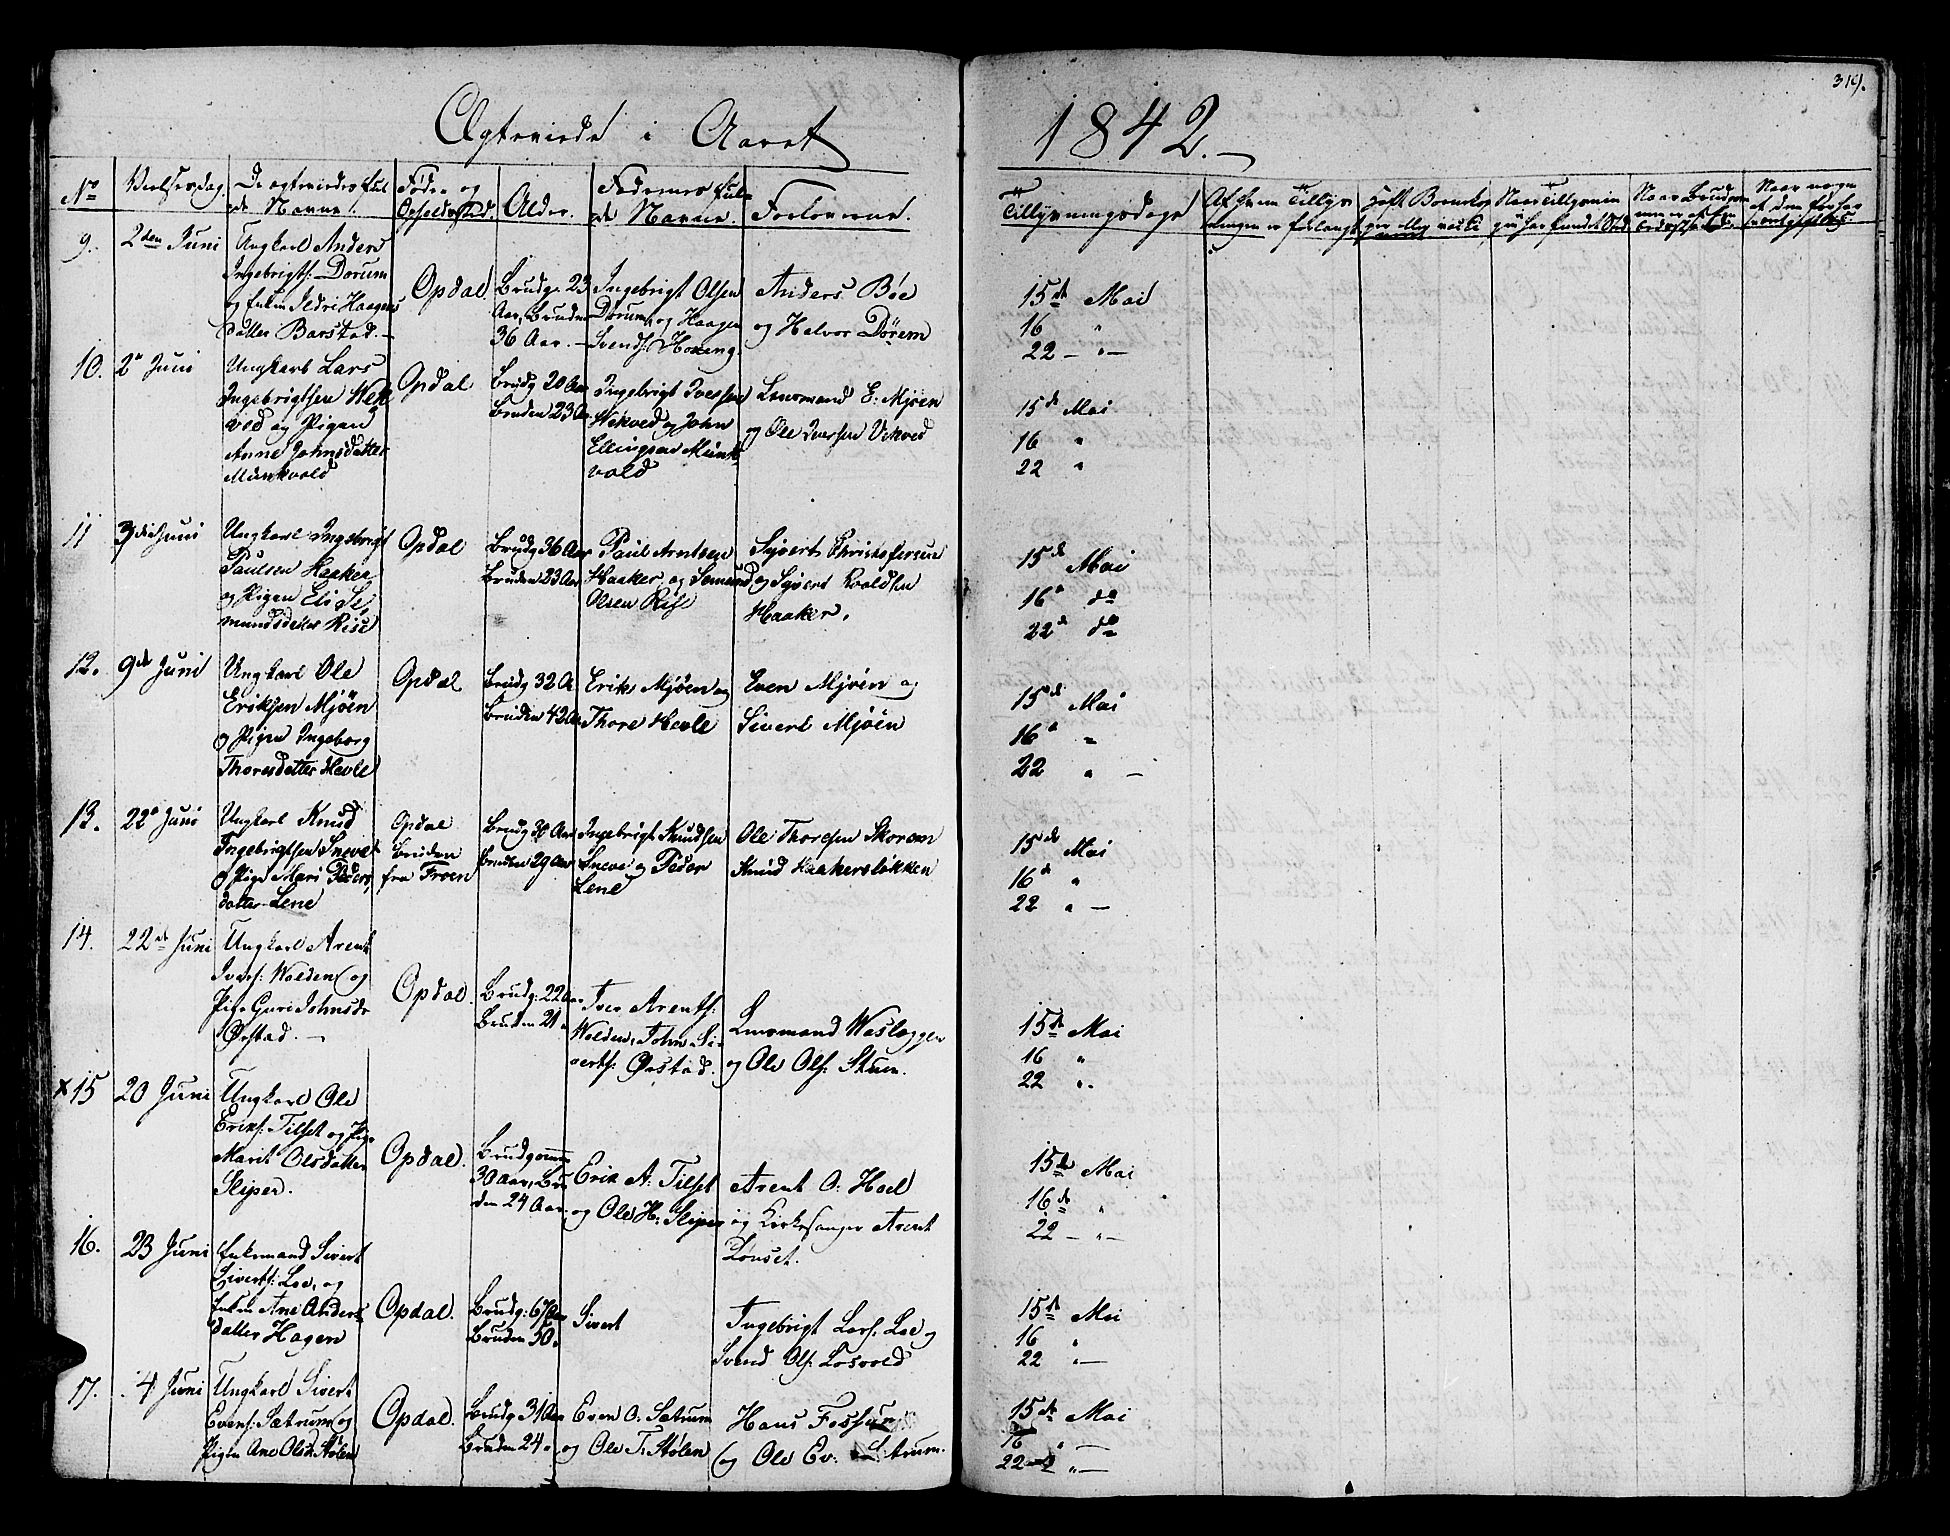 Ægteviede i Aaret 1842.
319.
No
Vielsesdag
De ægteviedes fulde Navne.
Føde- og Opholdssted.
Alder.
Fædrenes fulde Navne.
Forloverne.
Tillysningsdage
9.
2den Juni
Ungkarl Anders
Ingebrigts: Dorum
og Enken Ildri Haagens
datter Barstad.
Opdal.
Brudg. 23
Aar, Bruden
36 Aar.
Ingebrigt Olsen
Dorum, og Haagen
Svends: Hoveng.
Anders Bøe
og Halvor Dørem
15de Mai
16 "
22 - " -
10.
2n Juni
Ungkarl Lars
Ingebrigtsen Wek
vod og Pigen
Anne Johnsdatter
Munkvold
Opdal
Brudg 20 Aar
Bruden 23 Aar
Ingebrigt Iversen
Wekved og John
Ellingsen Munk
vold
Lensmand E: Mjøen
og Ole Iversen Vekved
15de Mai
16 "
22 "
11
3die Juni
Ungkarl Ingebrigt
Paulsen Haaker
og Pigen Eli Se
mundsdatter Rise
Opdal
Brudg 36 Aar
Bruden 23 Aar
Paul Arntsen
Haaker, og Semund
Olsen Rise
Syvert Christophersen
og Syvert Roaldsen
Haaker.
15de Mai
16d do
22d do
12.
9de Juni
Ungkarl Ole
Eriksen Mjöen
og Pigen Ingeborg
Thoresdatter Hevle
Opdal
Brudg 32 A.
Bruden 42 Aar
Erik Mjöen og
Thore Hevle
Even Mjöen og
Sivert Mjöen
15de Mai
16d "
22 " -
13.
22d Juni
Ungkarl Knud
Ingebrigtsen Sneve
og Pige Mari Peders
datter Lene
Opdal
bruden
fra Froen
Brudg 30 Aar
Bruden 29 Aar
Ingebrigt Knudsen
Sneve og Peder
Lene
Ole Thoresen Skoram
Knud Haakersløkken
15de Mai
16d "
22 " -
14.
22de Juni
Ungkarl Arent
Ivers: Wolden og
Pige Guri Johnsdr
Ørstad. -
Opdal.
Brudg: 22 Aar
Bruden 21 "
Iver Arents:
Wolden, John Si-
verts: Ørstad.
Lensmand Wasløggen
og Ole Ols: Skuen.
15de Mai
16 "
22 ".
x 15
20 Juni
Ungkarl Ole
Eriks: Tilset og Pige
Marit Olsdatter
Sliper.
Opdal.
Brudgommen
30 Aar, Bru
den 24 Aar.
Erik A: Tilset
og Ole H: Sliper
Arent O: Hoel
og Kirkesanger Arent
Lønset.
15de Mai
16de "
22 - " -
16.
23 Juni
Enkemand Sivert
Siverts: Loe, og
Enken Ane Anders
datter Hagen
Opdal.
Brudg: 67 Aar
Bruden 50 "
Sivert
Ingebrigt Lars: Loe og
Svend Ols: Losvold
15de Mai
16 "
22 " -
17.
4 Juni
Ungkarl Sivert
Evens: Sætrum og
Pigen Ane Olsdr Stølen
Opdal.
Brudg. 31 Aar
Bruden 24 "
Even O. Sætrum
og Ole T: Stølen
Hans Fossum
og Ole Ev: Sætrum.
15de Mai
16 " -
22 " -